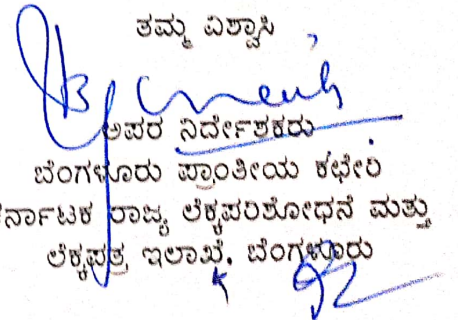 ತಮ್ಮ ವಿಶ್ವಾಸಿ,
ಅಪರ ನಿರ್ದೇಶಕರು
ಬೆಂಗಳೂರು ಪ್ರಾಂತೀಯ ಕಛೇರಿ
ರ್ನಾಟಕ ರಾಜ್ಯ ಲೆಕ್ಕಪರಿಶೋಧನೆ ಮತ್ತು
ಲೆಕ್ಕಪತ್ರ ಇಲಾಖೆ, ಬೆಂಗಳೂರು